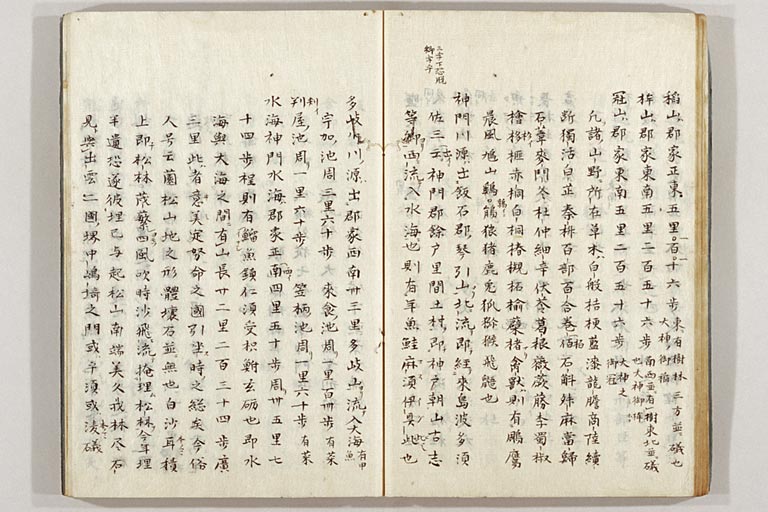 稲山郡家正東五里一百一十六歩東有樹林三方並礒也大神御稲
桙山郡家東南五里二百五十六歩南西並有樹東北並礒也大神御桙
冠山郡家東南五里二百五十六歩大神之御冠
凡諸山野所在草木白般桔梗藍漆龍膽商陸續
断獨活白芷秦椒百部百合巻栢石斛升麻當歸
石葦麥門冬杜仲細辛伏苓葛根薇蕨藤李蜀椒
檜杉榧赤桐白桐椿槻柘楡蘗楮禽獣則有鵰鷹
晨風鳩山鷄鶉熊狼猪鹿兎狐獼猴飛鼯也
神門川源出飯石郡琴引山北流即經來島波多須
佐三云神門郡餘戸里間土村即神戸朝山古志
等郷西流入水海也則有年魚鮭麻須伊具比也
三字下恐脱郷字乎
多岐川源出郡家西南卅三里多岐山流入大海有年魚
宇加池周三里六十歩來食池周一里百卌歩有菜
刈屋池周一里六十歩笠柄池周一里六十歩有菜
水海神門水海郡家正南四里五十歩周卅五里七
十四歩程則有鯔魚鎮仁須受枳鮒玄砺也即水
海與大海之間有山長廿二里二百三十四歩廣
三里此者意美定努命之國引坐時之総矣今俗
人号云薗松山地之形體壌石並無也白沙耳積
上即松林茂繁四風吹時沙飛流掩埋松林今年埋
半遺恐遂被埋已与起松山南端美久我林尽石
見與出雲二國堺中嶋埼之門或平須或凌礒